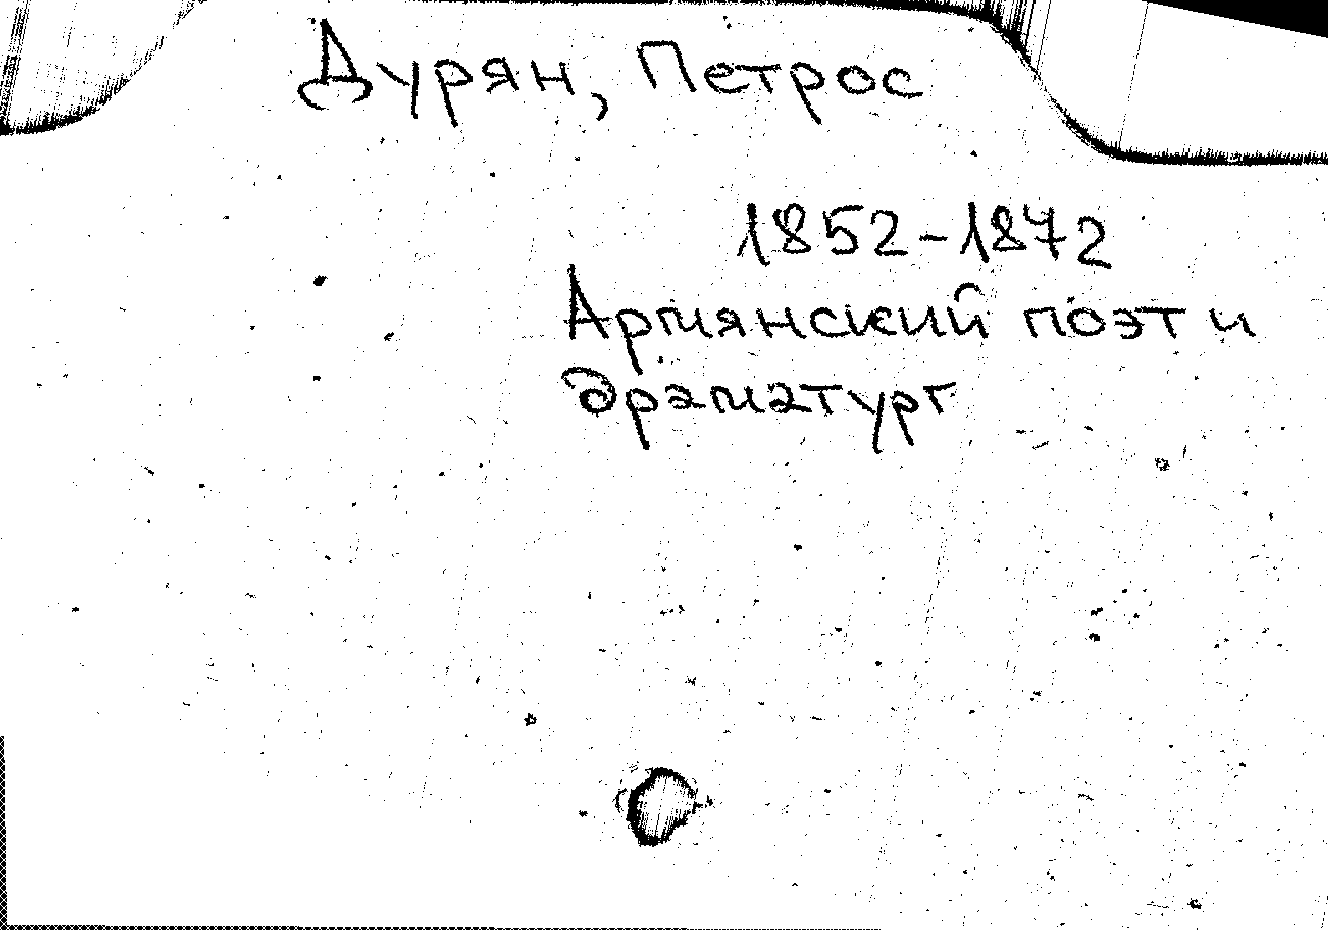 Дурян, Петрос
1852-1872
Армянский поэт и
драматург